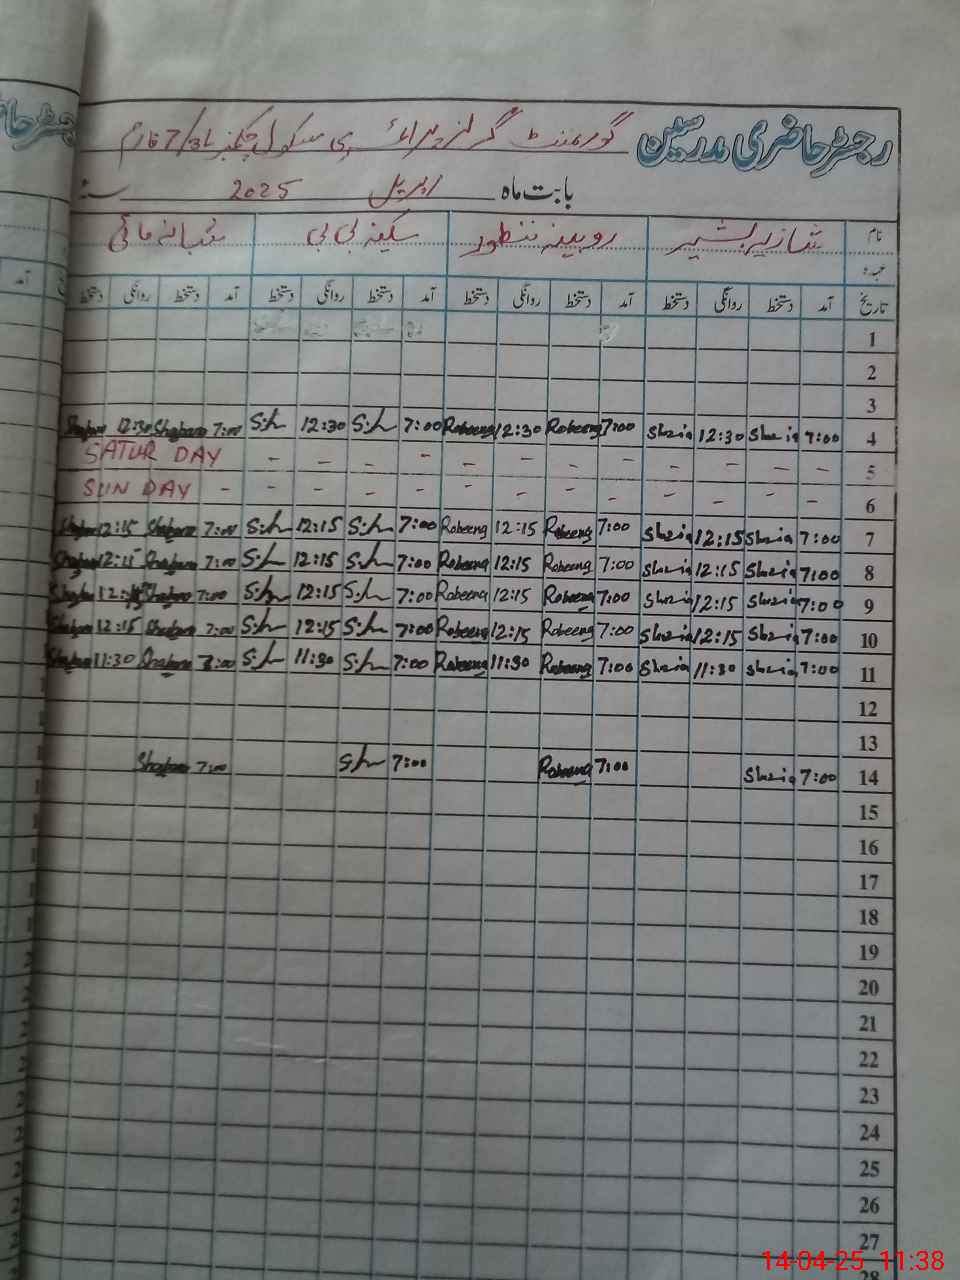 رجسٹر حاضری مدرسین گورنمنٹ گرلز پرائمری سکول
بابت ماہ اپریل 2025
نام شازیہ بشیر روبینہ منظور سکینہ بی بی شبانہ
عہدہ
تاریخ آمد دستخط روانگی دستخط آمد دستخط روانگی دستخط آمد دستخط روانگی دستخط آمد دستخط روانگی دستخط
1
2
3
4 7:00 Shazia 12:30 Shazia 7:00 Robeena 12:30 Robeena 7:00 S.h 12:30 S.h 7:00 Shabana 12:30 Shabana
5 - - - - - - - - - - - - - SATUR DAY
6 - - - - - - - - - - - - - SUN DAY
7 7:00 Shazia 12:15 Shazia 7:00 Robeena 12:15 Robeena 7:00 S.h 12:15 S.h 7:00 Shabana 12:15 Shabana
8 7:00 Shazia 12:15 Shazia 7:00 Robeena 12:15 Robeena 7:00 S.h 12:15 S.h 7:00 Shabana 12:15 Shabana
9 7:00 Shazia 12:15 Shazia 7:00 Robeena 12:15 Robeena 7:00 S.h 12:15 S.h 7:00 Shabana 12:15 Shabana
10 7:00 Shazia 12:15 Shazia 7:00 Robeena 12:15 Robeena 7:00 S.h 12:15 S.h 7:00 Shabana 12:15 Shabana
11 7:00 Shazia 11:30 Shazia 7:00 Robeena 11:30 Robeena 7:00 S.h 11:30 S.h 7:00 Shabana 11:30 Shabana
12
13
14 7:00 Shazia 7:00 Robeena 7:00 S.h 7:00 Shabana
15
16
17
18
19
20
21
22
23
24
25
26
27
28
14-04-25 11:38